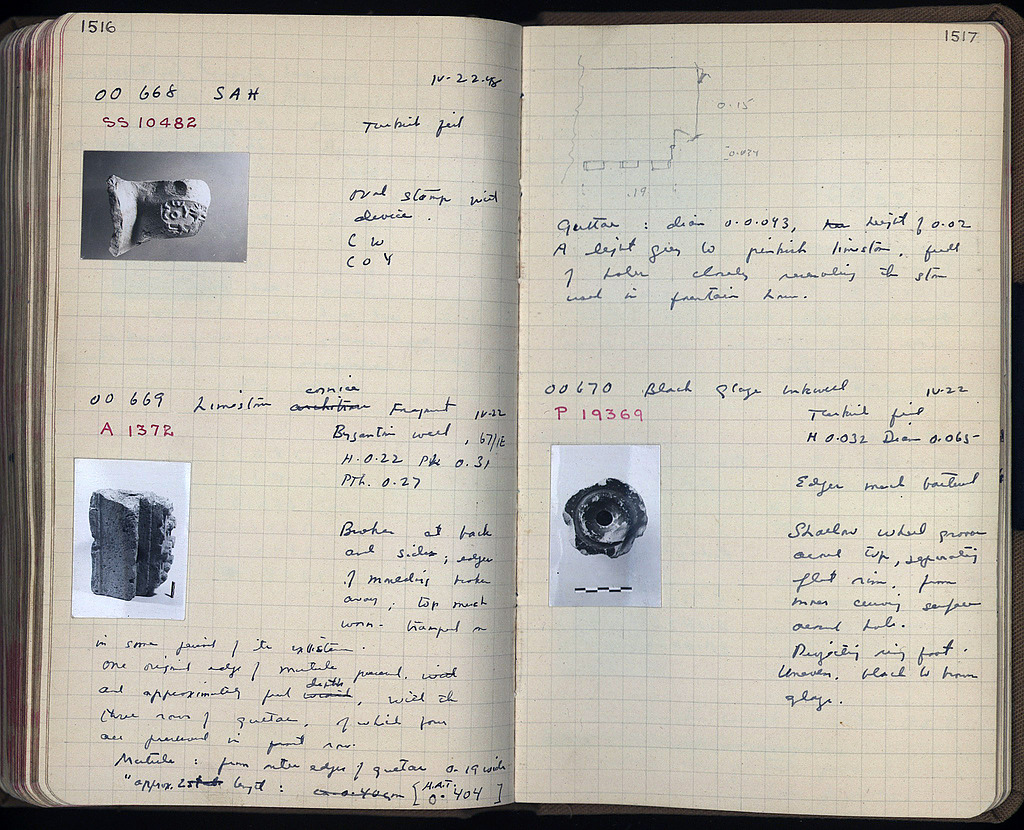 1516
IV-22-48
OO 668 SAH
SS 10482
Turkish fill
Oval stamp with
device.
C W
C O Y
OO 669 Limestone cornice Fragment IV-22
A 1372
Byzantine well, 67/ΙΕ
H. 0.22 0.31
PTh. 0.27
Broken at back
and sides; edges
of moulding broken
away; top much
worn - tramped on
in some period of its existence.
One original edge of mutule preserved, with
and approximately full depth, with the
three rows of guttae, of which four
are preserved in front row.
Mutule: from outer edges of guttae 0.19 wide
"approx. length: [H.A.T. 0.404]
1517
0.15
0.034
.19
Guttae: diam 0.0.043, height of 0.02
A light grey to pinkish limestone, full
of holes closely resembling the stone
used in fountain house.
OO 670 Black glaze inkwell IV-22
P 19369
Turkish fill
H 0.032 Diam 0.065
Edges much battered
Shallow wheel groove
around top, separating
flat rim, from
inner curving surface
around hole.
Projecting ring foot.
Uneven, black to brown
glaze.